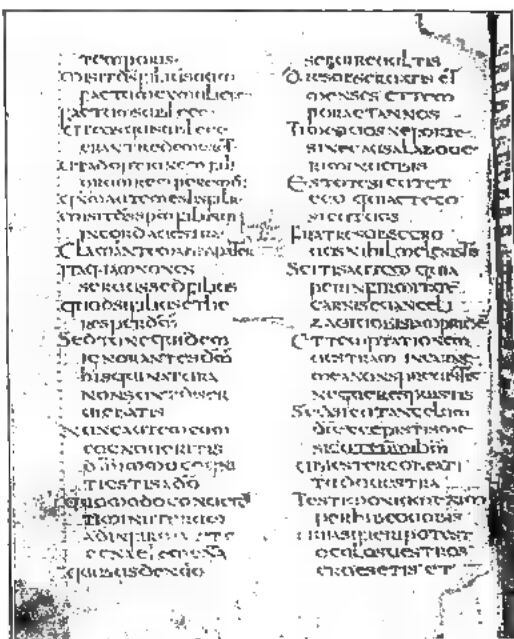 TEMPORIS
MISIT DS FILIUM SUUM
FACTUM EX MULIERE
FACTUM SUB LEGE
UT EOS QUI SUB LEGE
ERANT REDIMERET
UT ADOPTIONEM FILI
ORUM RECIPEREMUS
QNM AUTEM ESTIS FILII
MISIT DS SPM FILII SUI
IN CORDA NOSTRA
CLAMANTEM ABBA PATER
ITAQ IAM NON ES
SERUUS SED FILIUS
QUOD SI FILIUS ET HE
RES PER DM
SED TUNC QUIDEM
IGNORANTES DM
HIS QUI NATURA
NON SUNT DII SER
UIEBATIS
NUNC AUTEM CUM
COGNOUERITIS
DM IMMO COGNI
TI ESTIS A DO
QUOMODO CONUERTI
MINI ITERUM
AD INFIRMA ET
EGENA ELEMENTA
QUIBUS DENUO
SERUIRE UULTIS
DIES OBSERUATIS ET
MENSES ET TEM
PORA ET ANNOS
TIMEO UOS NE FORTE
SINE CAUSA LABOUE
RIM IN UOBIS
ESTOTE SICUT ET
EGO QUIA ET EGO
SICUT UOS
FRATRES OBSECRO
UOS NIHIL ME LAESISTIS
SCITIS AUTEM QUIA
PER INFIRMITATE
CARNIS EUANGELI
ZAUI UOBIS IAM PRIDE
ET TEMPTATIONEM
UESTRAM IN CARNE
MEA NON SPREUISTIS
NEQUE RESPUISTIS
SED SICUT ANGELUM
DI EXCEPISTIS ME
SICUT XPM IHM
UBI EST ERGO BEATI
TUDO UESTRA
TESTIMONIUM ENIM
PERHIBEO UOBIS
QUIA SI FIERI POTUIT
OCULOS UESTROS
ERUISSETIS ET